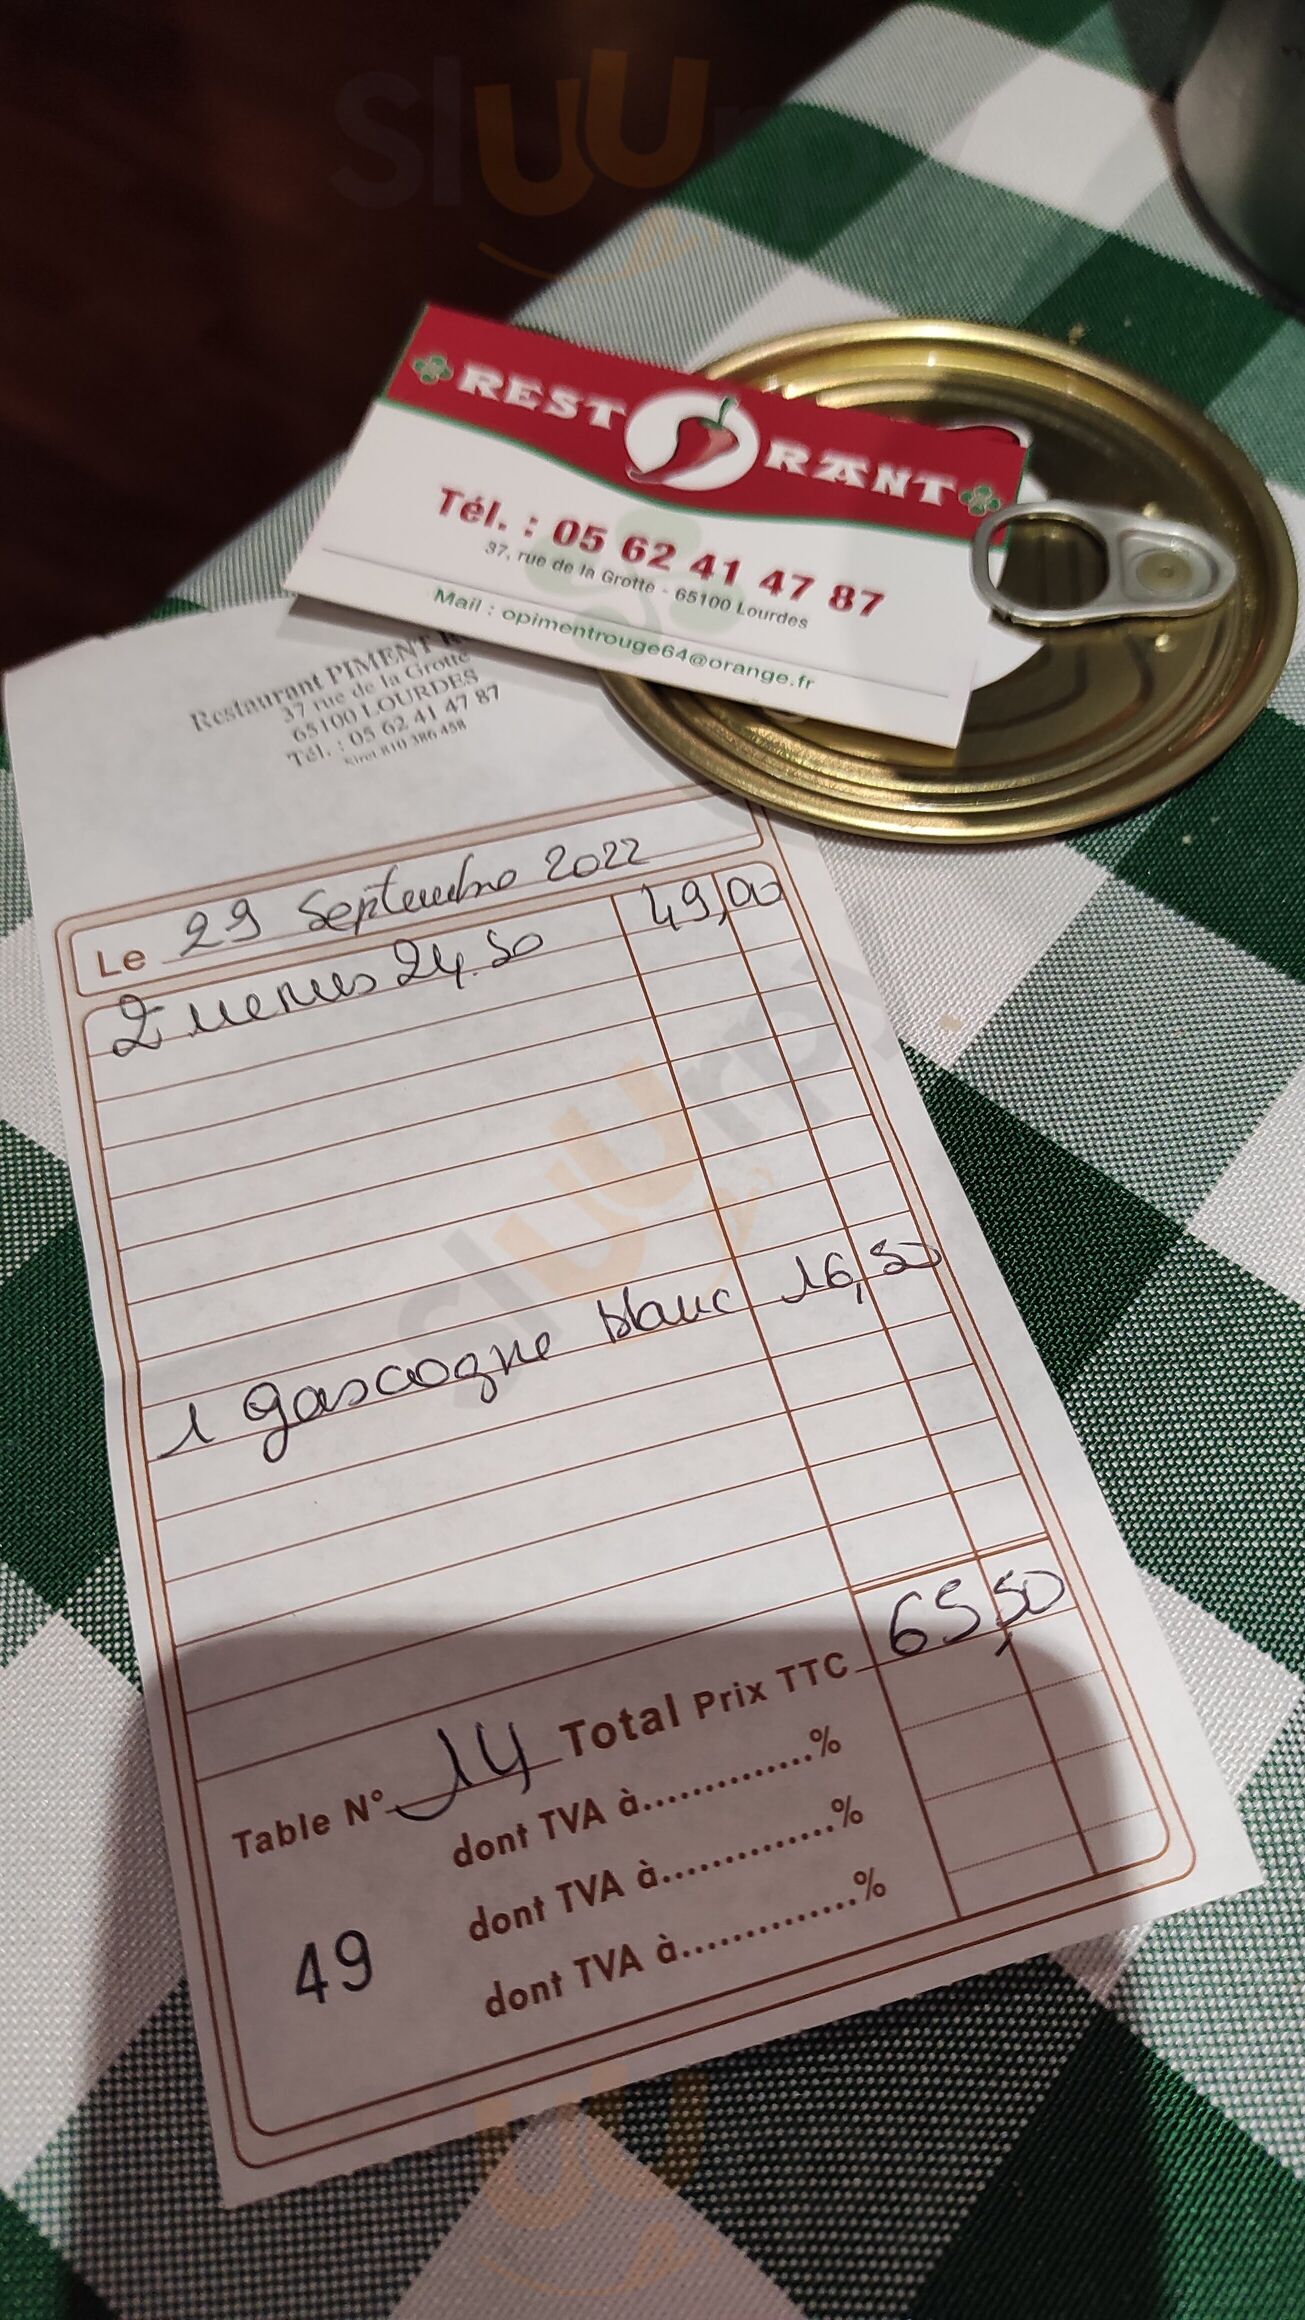 REST RANT
Tél. : 05 62 41 47 87
37, rue de la Grotte - 65100 Lourdes
Mail : opimentrouge64@orange.fr
Restaurant PIMENT R
37 rue de la Grotte
65100 LOURDES
Tél. : 05 62 41 47 87
Siret 810 386 458
Le 29 Septembre 2022
2 menus 24.50 49,00
1 gascogne blanc 16,50
Table N° 14 Total Prix TTC 65,50
dont TVA à..............%
dont TVA à..............%
49 dont TVA à..............%
Sluurpy
Sluurpy